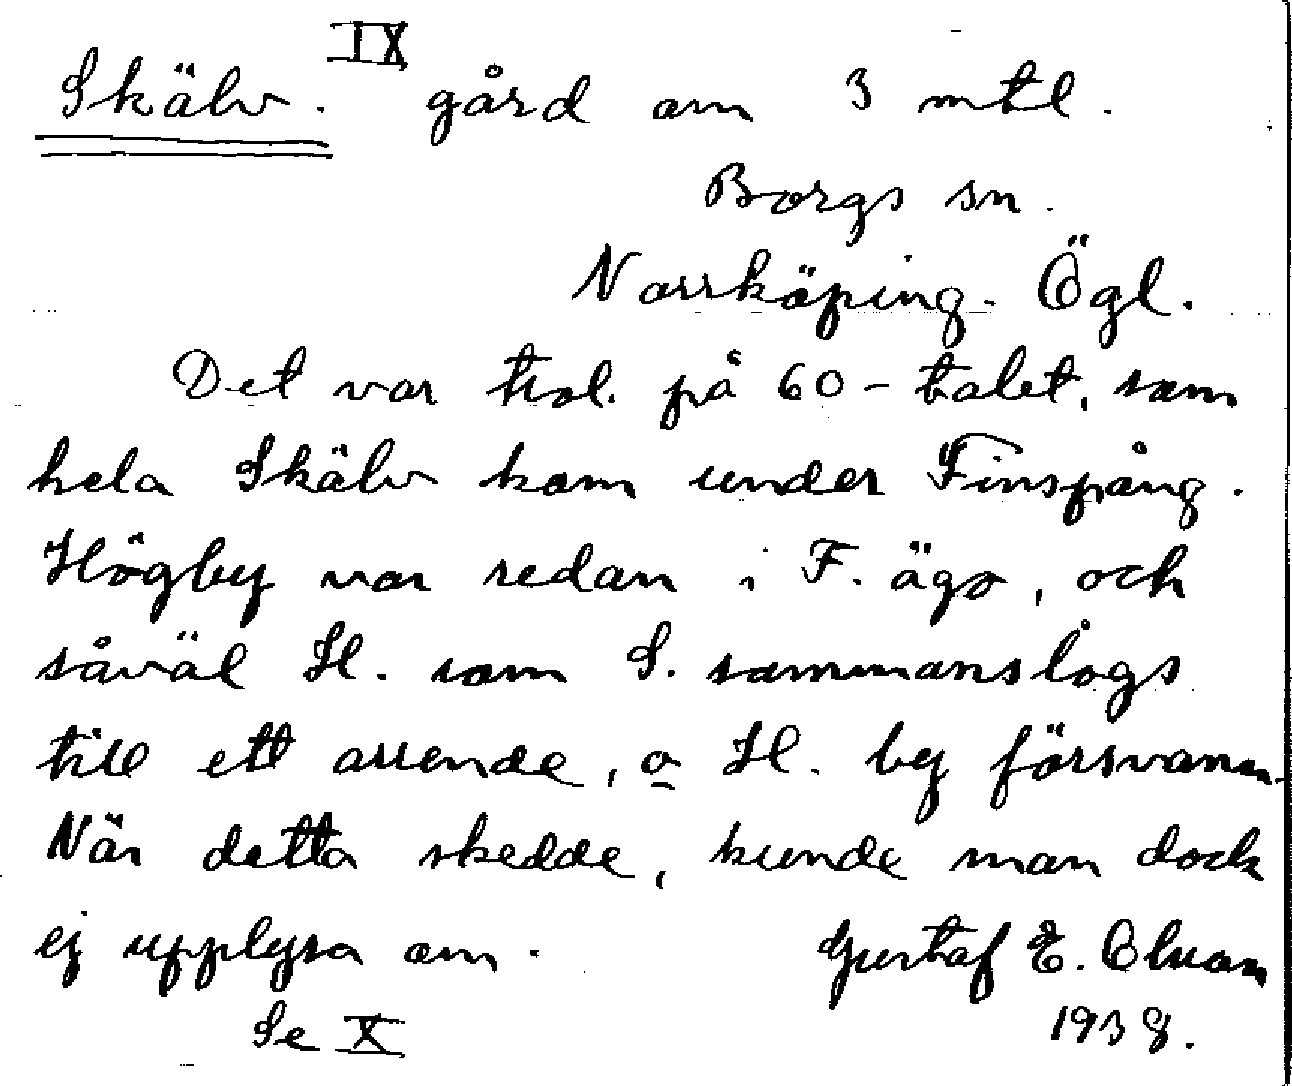 IX
Skälv. gård om 3 mtl.
Borgs sn.
Norrköping. Ögl.
Det var trol. på 60-talet, som
hela Skälv kom under Finspång.
Högby var redan i F. ägo, och
såväl H. som S. sammanslogs
till ett arrende, o H. by försvann.
När detta skedde, kunde man dock
ej upplysa om. Gustaf E.
Se X 1938.